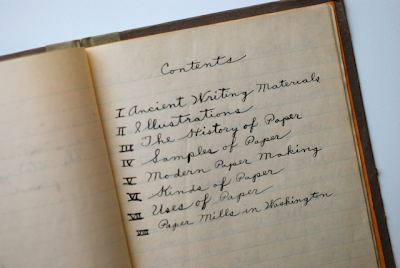 Contents
I Ancient Writing Materials
II Illustrations
III The History of Paper
IV Samples of Paper
V Modern Paper Making
VI Kinds of Paper
VII Uses of Paper
VIII Paper Mills in Washington